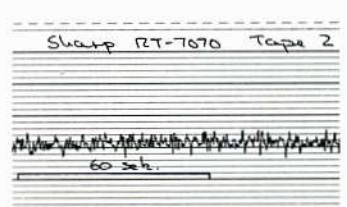 Sharp RT-7070 Tape 2
60 sek.